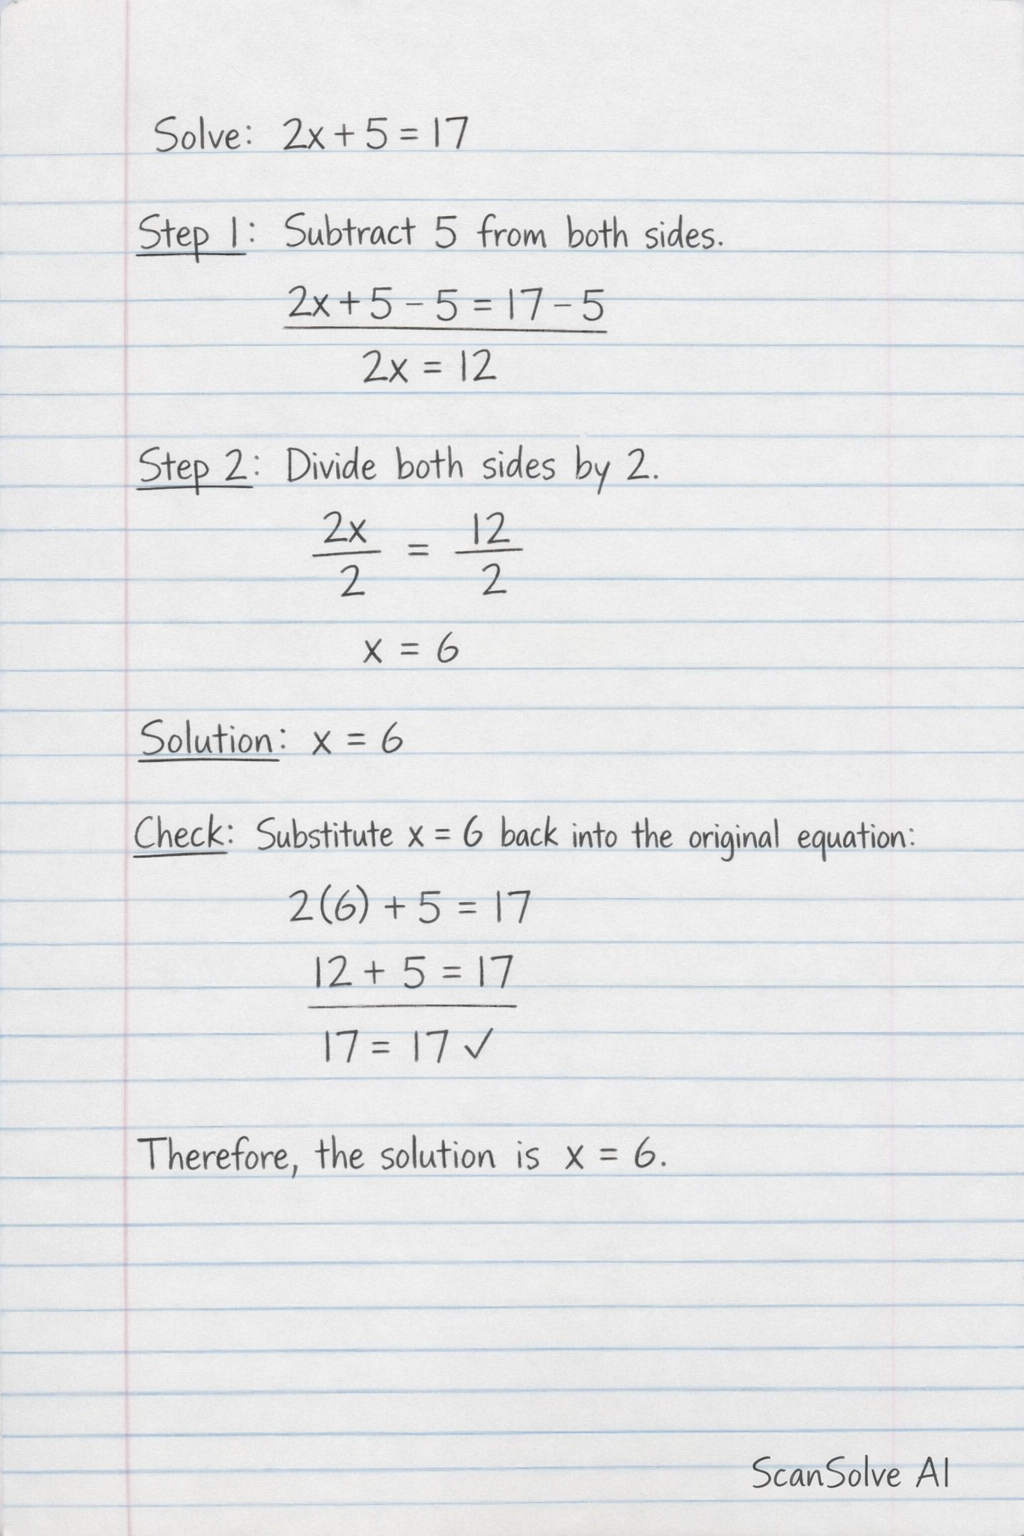 Solve: 2x + 5 = 17
Step 1: Subtract 5 from both sides.
2x + 5 - 5 = 17 - 5
2x = 12
Step 2: Divide both sides by 2.
2x/2 = 12/2
x = 6
Solution: x = 6
Check: Substitute x = 6 back into the original equation:
2(6) + 5 = 17
12 + 5 = 17
17 = 17 ✓
Therefore, the solution is x = 6.
ScanSolve AI